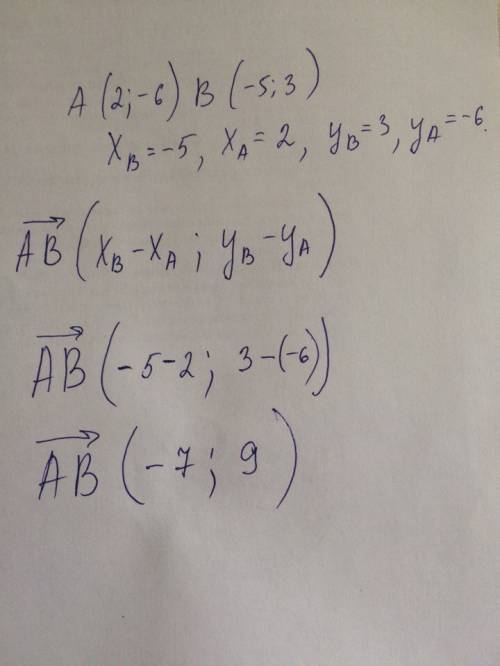 A (2;-6) B (-5;3)
x_B=-5, x_A=2, y_B=3, y_A=-6.
\overrightarrow{AB} (x_B-x_A; y_B-y_A)
\overrightarrow{AB} (-5-2; 3-(-6))
\overrightarrow{AB} (-7; 9)